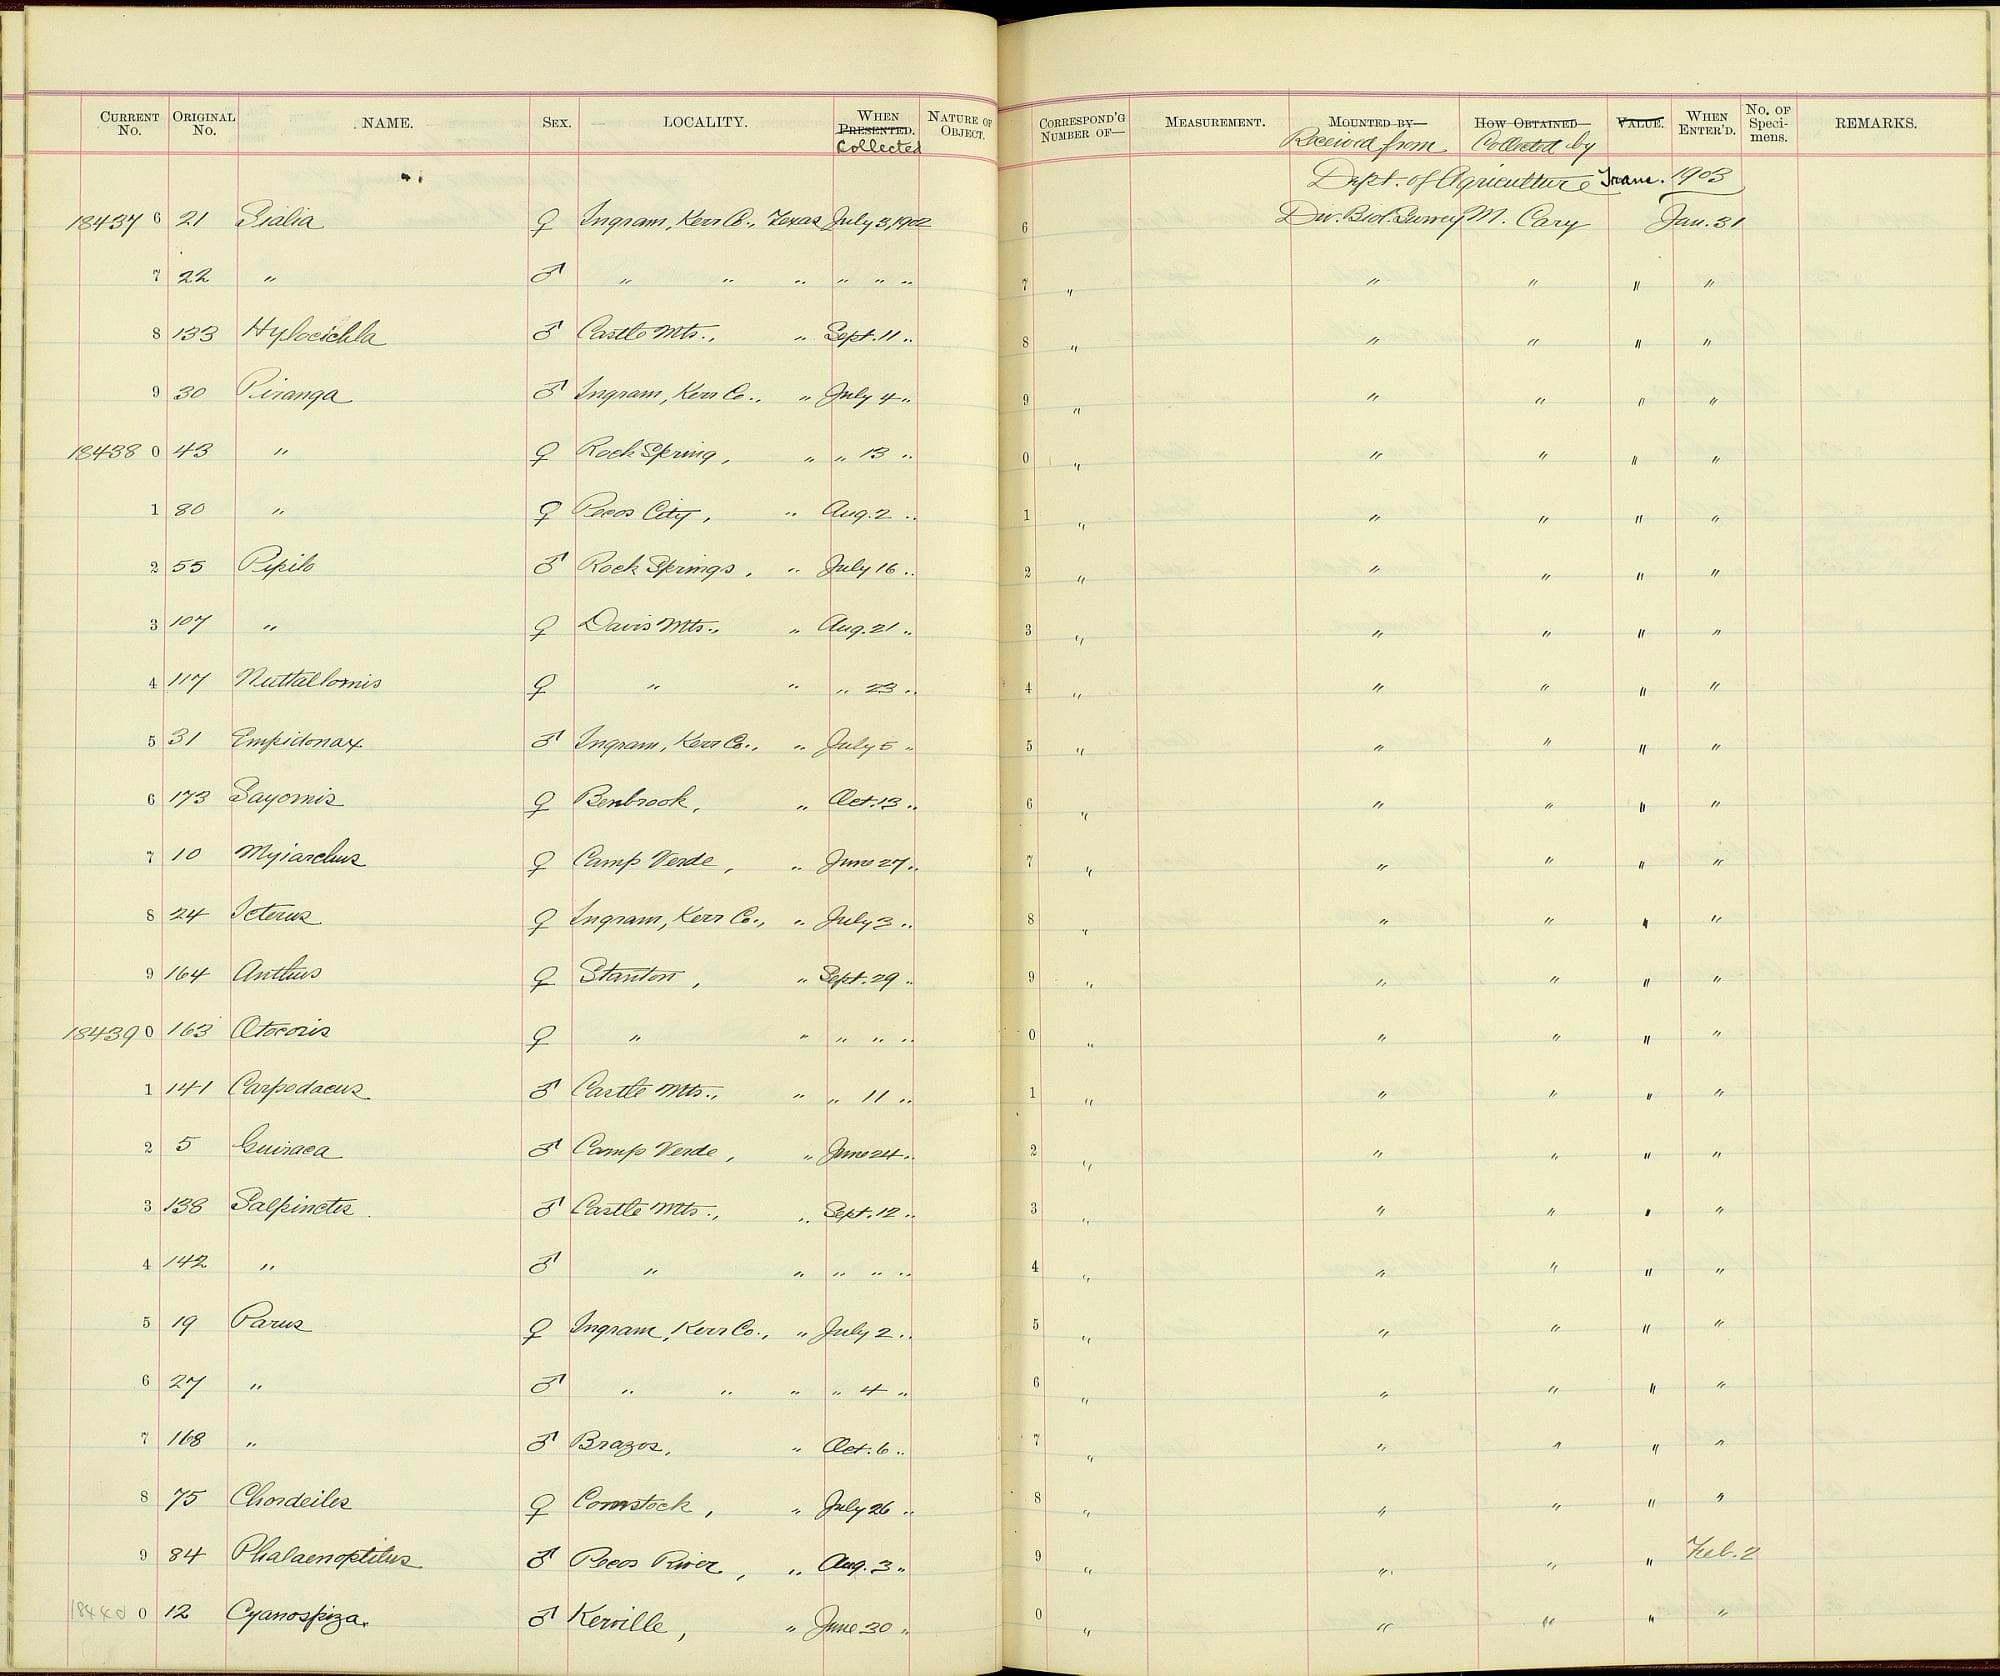 CURRENT No. ORIGINAL No. NAME. SEX. LOCALITY. WHEN PRESENTED. Collected NATURE OF OBJECT. CORRESPOND'G NUMBER OF— MEASUREMENT. MOUNTED BY— Received from HOW OBTAINED— Collected by VALUE. WHEN ENTER'D. No. OF Speci-mens. REMARKS.
Dept. of Agriculture Trans. 1903
18437 6 21 Sialia ♀ Ingram, Kerr Co., Texas July 3, 1902 6 Div. Biol. Survey M. Cary Jan. 31
7 22 " ♂ " " " " " " 7 " " " " "
8 133 Hylocichla ♂ Castle Mts., " Sept. 11 " 8 " " " " "
9 30 Piranga ♂ Ingram, Kerr Co., " July 4 " 9 " " " " "
18438 0 43 " ♀ Rock Spring, " " 13 " 0 " " " " "
1 80 " ♀ Pecos City, " Aug. 2 " 1 " " " " "
2 55 Pipilo ♂ Rock Springs, " July 16 " 2 " " " " "
3 107 " ♀ Davis Mts., " Aug. 21 " 3 " " " " "
4 117 Nuttallornis ♀ " " " 23 " 4 " " " " "
5 31 Empidonax ♂ Ingram, Kerr Co., " July 5 " 5 " " " " "
6 173 Sayornis ♀ Benbrook, " Oct. 13 " 6 " " " " "
7 10 Myiarchus ♀ Camp Verde, " June 27 " 7 " " " " "
8 24 Icterus ♀ Ingram, Kerr Co., " July 3 " 8 " " " " "
9 164 Anthus ♀ Stanton, " Sept. 29 " 9 " " " " "
18439 0 163 Otocoris ♀ " " " " " 0 " " " " "
1 141 Carpodacus ♂ Castle Mts., " " 11 " 1 " " " " "
2 5 Guiraca ♂ Camp Verde, " June 24 " 2 " " " " "
3 138 Salpinctes. ♂ Castle Mts., " Sept. 12 " 3 " " " " "
4 142 " ♂ " " " " " 4 " " " " "
5 19 Parus ♀ Ingram, Kerr Co., " July 2 " 5 " " " " "
6 27 " ♂ " " " " 4 " 6 " " " " "
7 168 " ♂ Brazos, " Oct. 6 " 7 " " " " "
8 75 Chordeiles ♀ Comstock, " July 26 " 8 " " " " "
9 84 Phalaenoptilus ♂ Pecos River, " Aug. 3 " 9 " " " " Feb. 2
18440 0 12 Cyanospiza. ♂ Kerville, " June 30 " 0 " " " " "